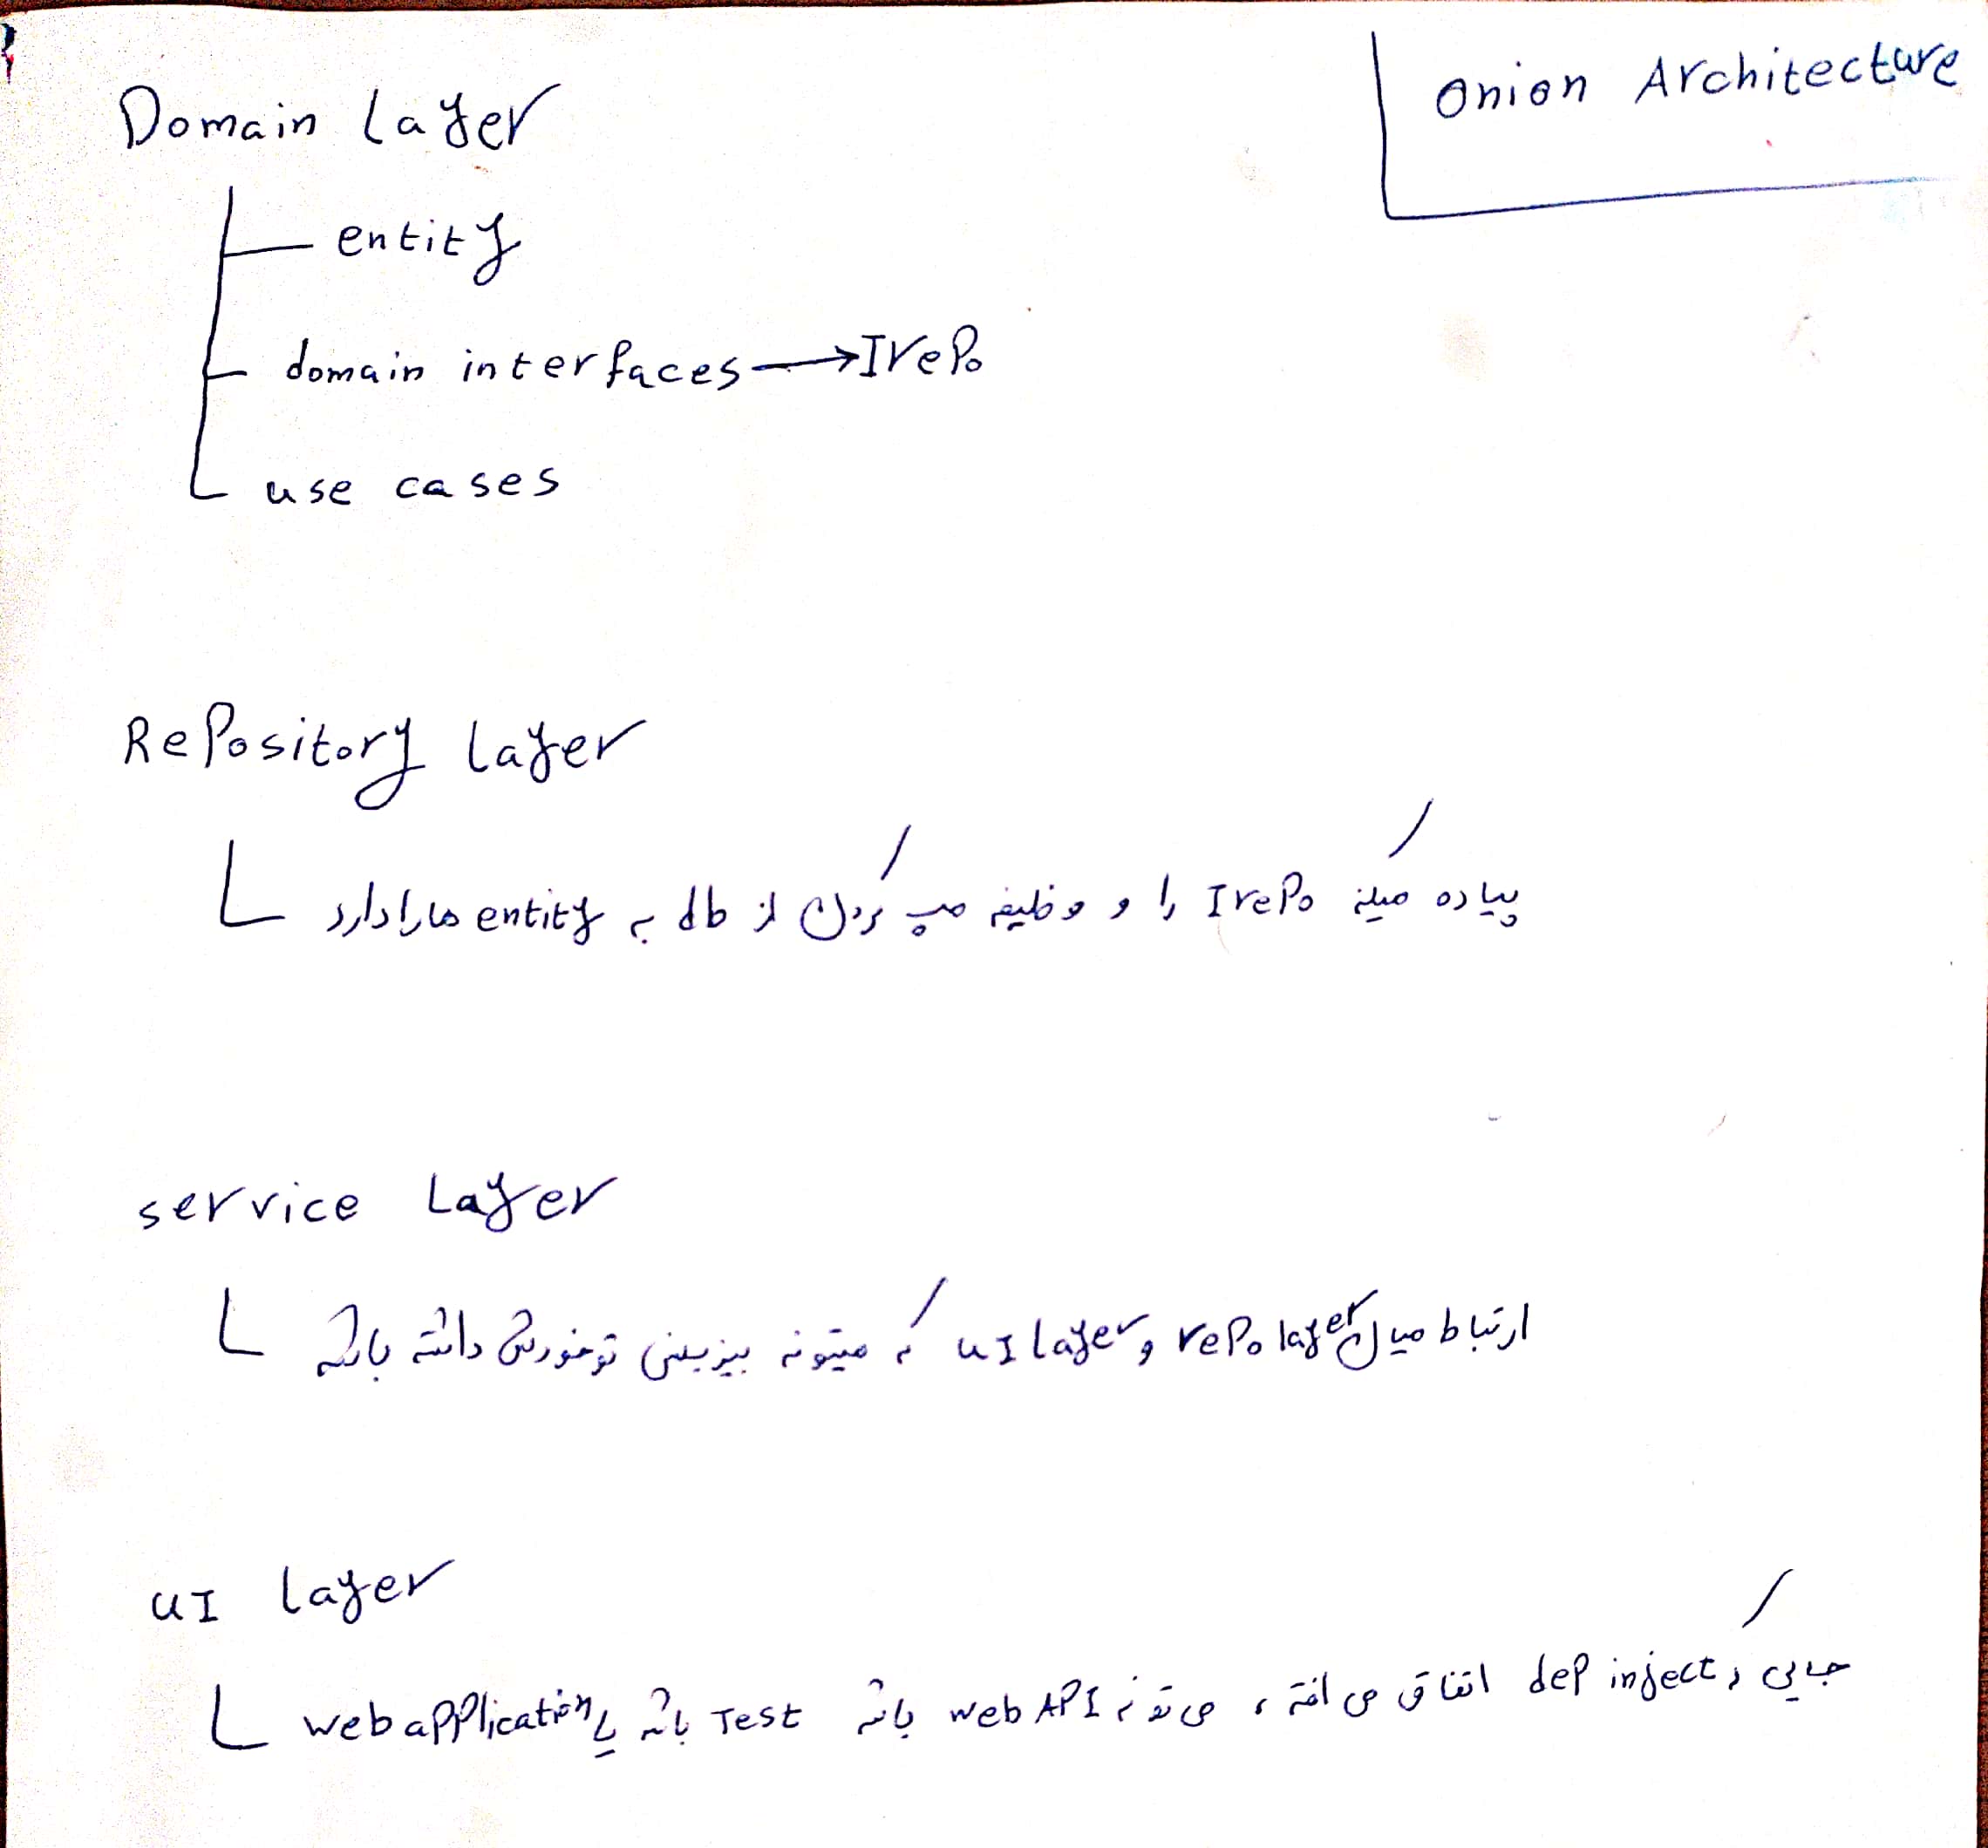 Onion Architecture
Domain layer
entity
domain interfaces → IrePo
use cases
RePository layer
پیاده میکنه IrePo را و وظیفه مپ کردن از db به entity ها را دارد
service Layer
ارتباط میان rePo layer و uI layer که میتونه بیزینس تو خودش داشته باشه
uI layer
جایی که deP inject اتفاق می افته ، می تونه web API باشه Test باشه یا web aPPlication